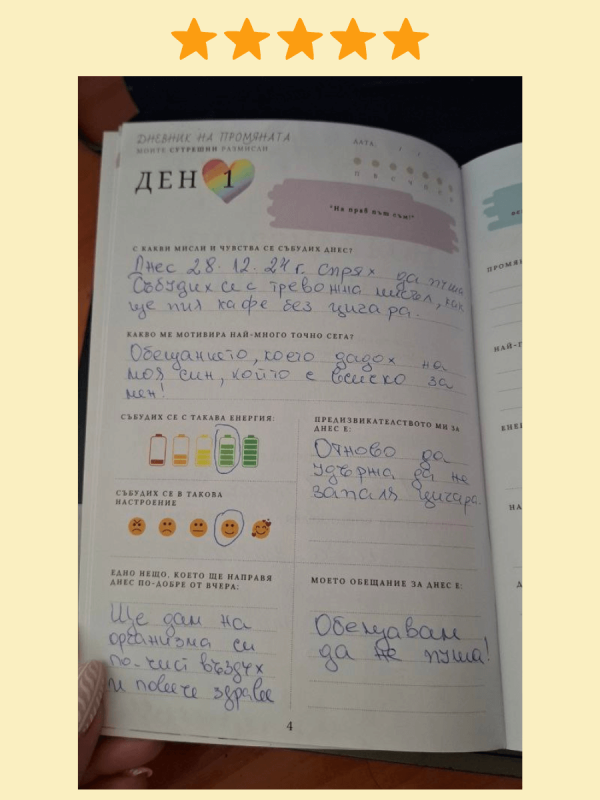 ДНЕВНИК НА ПРОМЯНАТА
МОИТЕ СУТРЕШНИ РАЗМИСЛИ
ДЕН 1
ДАТА: / /
П В С Ч П С Н
"На прав път съм!"
С КАКВИ МИСЛИ И ЧУВСТВА СЕ СЪБУДИХ ДНЕС?
Днес 28.12.24г. спрях да пуша
Събудих се с тревожна мисъл, как
ще пия кафе без цигара.
КАКВО МЕ МОТИВИРА НАЙ-МНОГО ТОЧНО СЕГА?
Обещанието, което дадох на
моя син, който е всиско за
мен!
СЪБУДИХ СЕ С ТАКАВА ЕНЕРГИЯ:
СЪБУДИХ СЕ В ТАКОВА
НАСТРОЕНИЕ
ПРЕДИЗВИКАТЕЛСТВОТО МИ ЗА
ДНЕС Е:
Отново да
удържа да не
запаля цигара.
ЕДНО НЕЩО, КОЕТО ЩЕ НАПРАВЯ
ДНЕС ПО-ДОБРЕ ОТ ВЧЕРА:
Ще дам на
организма си
по-чист въздух
и повече здраве
МОЕТО ОБЕЩАНИЕ ЗА ДНЕС Е:
Обещавам
да не пуша!
4